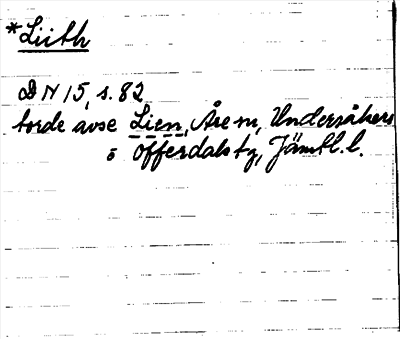 *Liith
DN 15, s. 82
torde avse Lien, Åre sn, Undersåkers
o Offerdals tg, Jämtl. l.